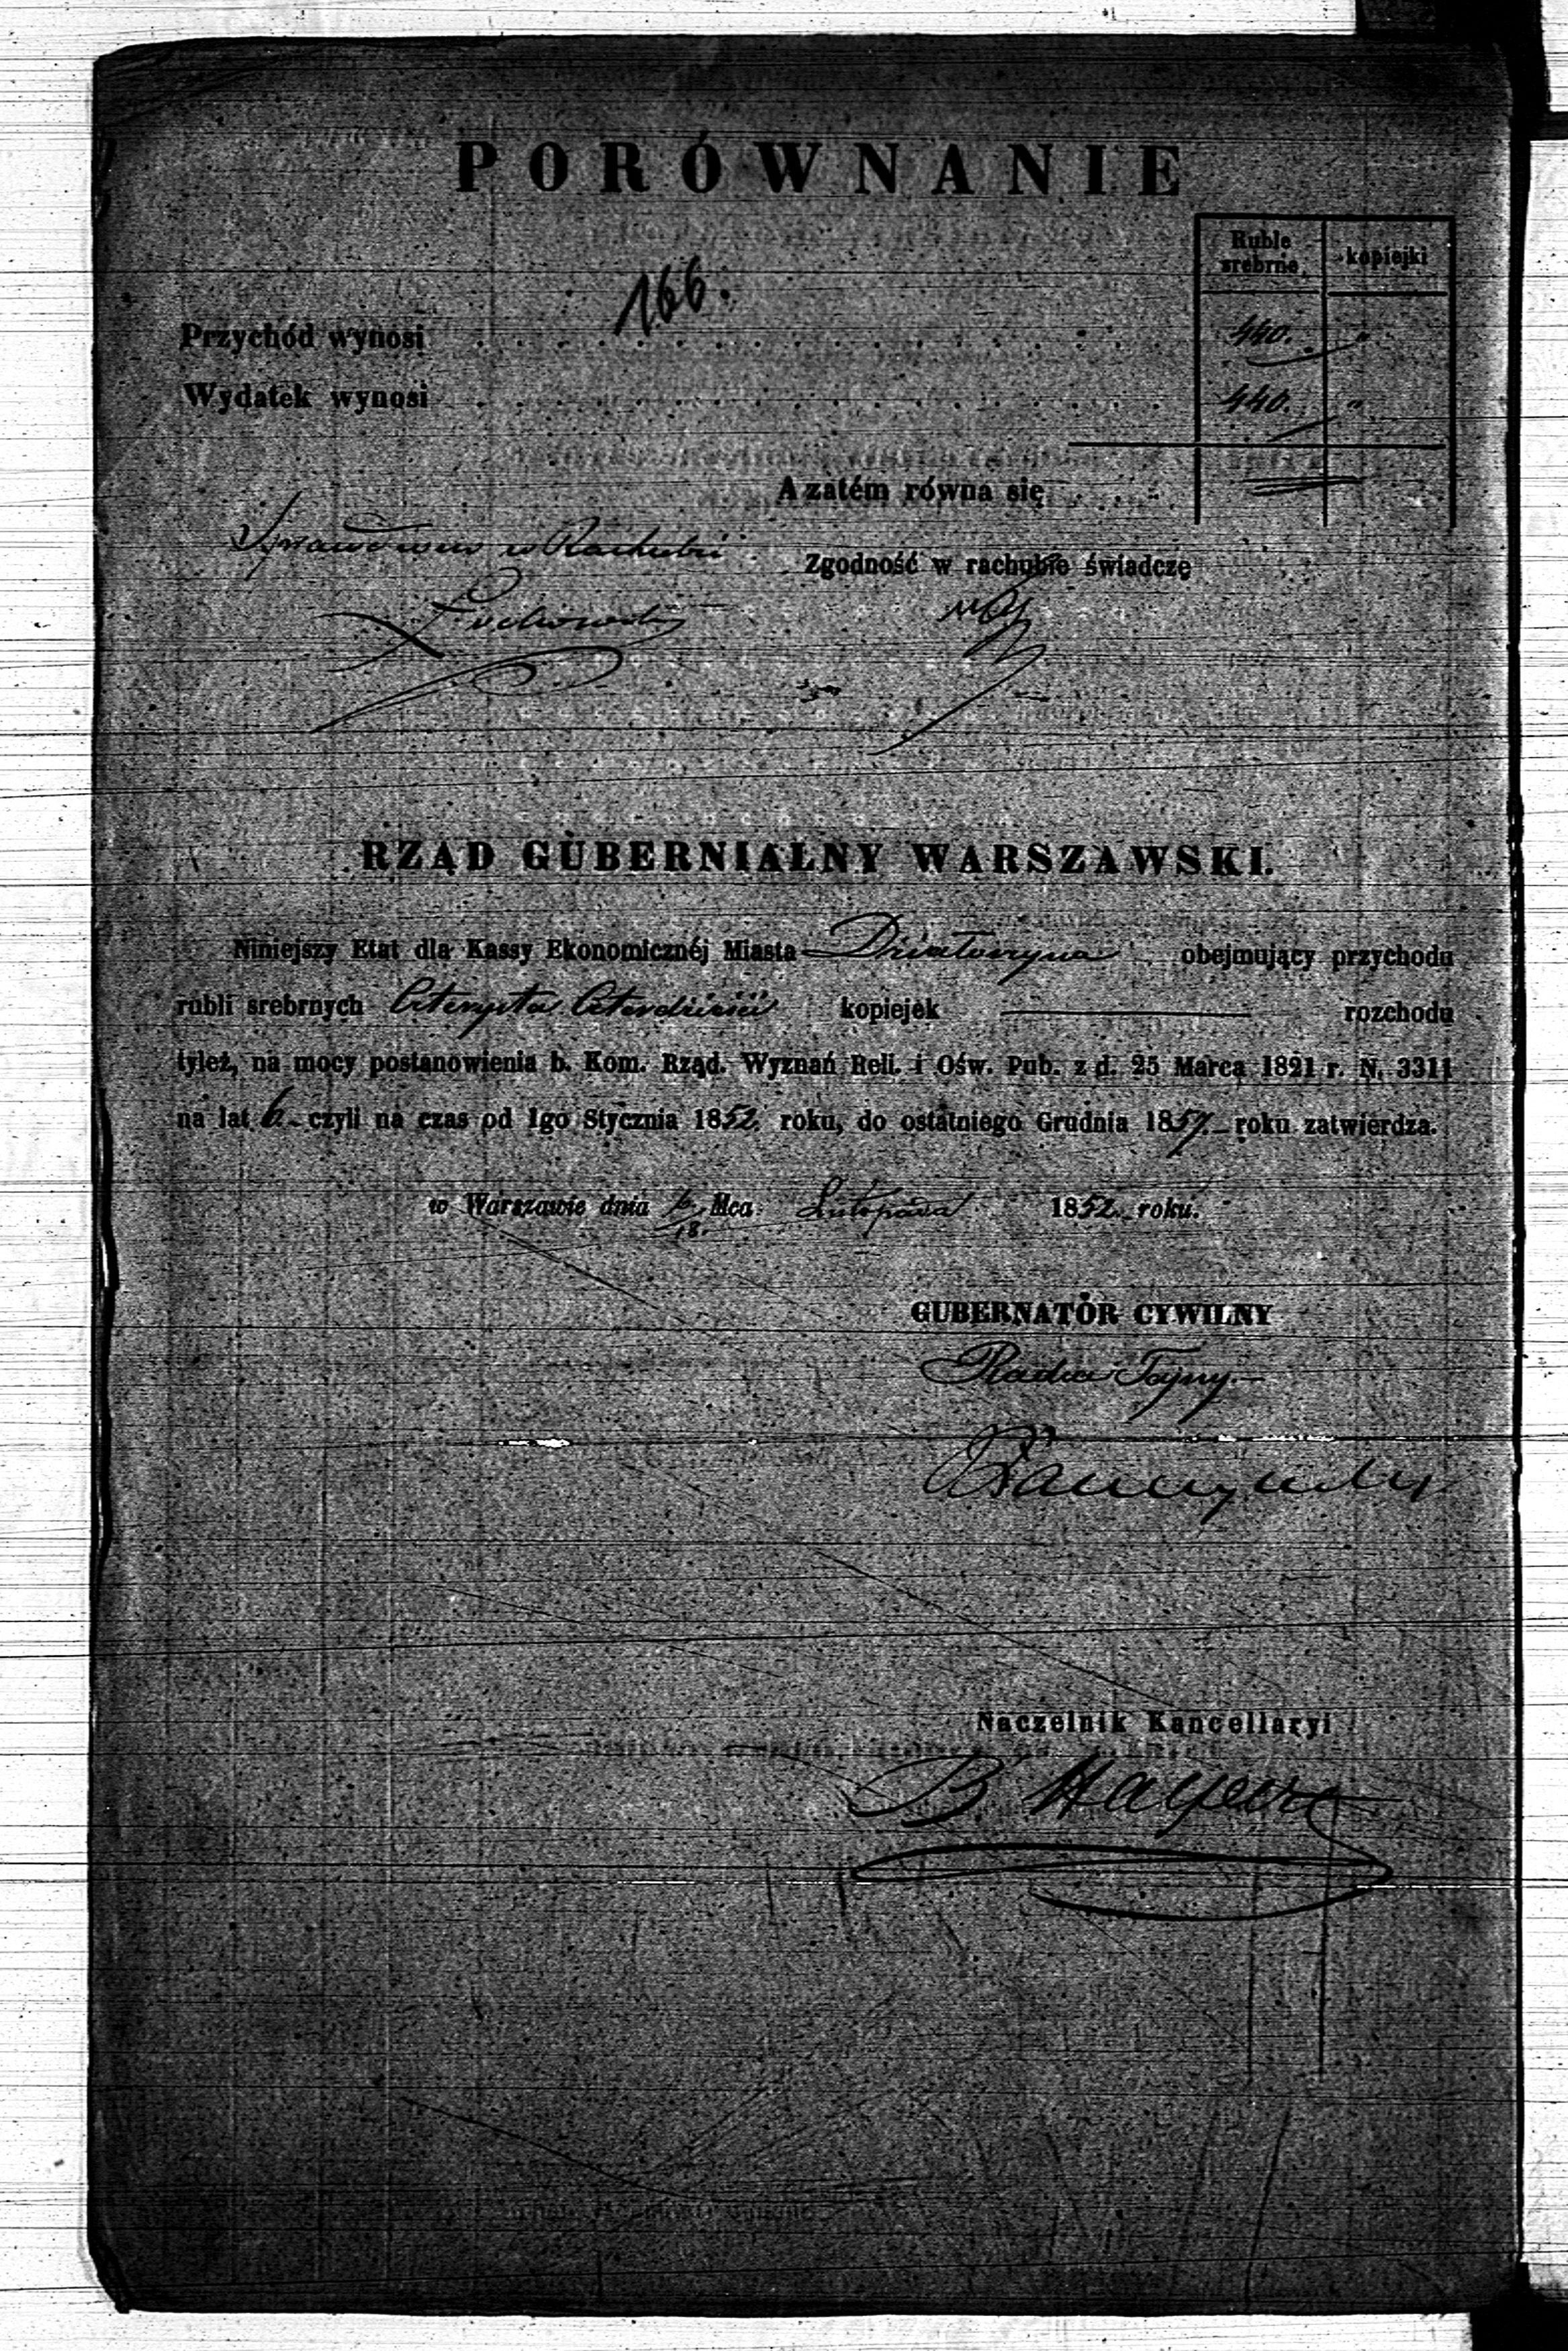 PORÓWNANIE
Ruble srebrne kopiejki
166.
Przychód wynosi . . . . . 440. „
Wydatek wynosi . . . . . 440. „
A zatém równa się . . . .
w Rachubie
Zgodność w rachubie świadczę
RZĄD GUBERNIALNY WARSZAWSKI.
Niniejszy Etat dla Kassy Ekonomicznéj Miasta obejmujący przychodu
rubli srebrnych Czterysta Czterdzieści kopiejek ——— rozchodu
tyleż, na mocy postanowienia b. Kom. Rząd. Wyznań Reli. i Ośw. Pub. z d. 25 Marca 1821 r. N. 3311
na lat 6. czyli na czas od 1go Stycznia 1852. roku, do ostatniego Grudnia 1857. roku zatwierdza.
w Warszawie dnia 6/18. Mca Listopada 1852. roku.
GUBERNATOR CYWILNY
Radca Tajny.
Naczelnik Kancellaryi
B